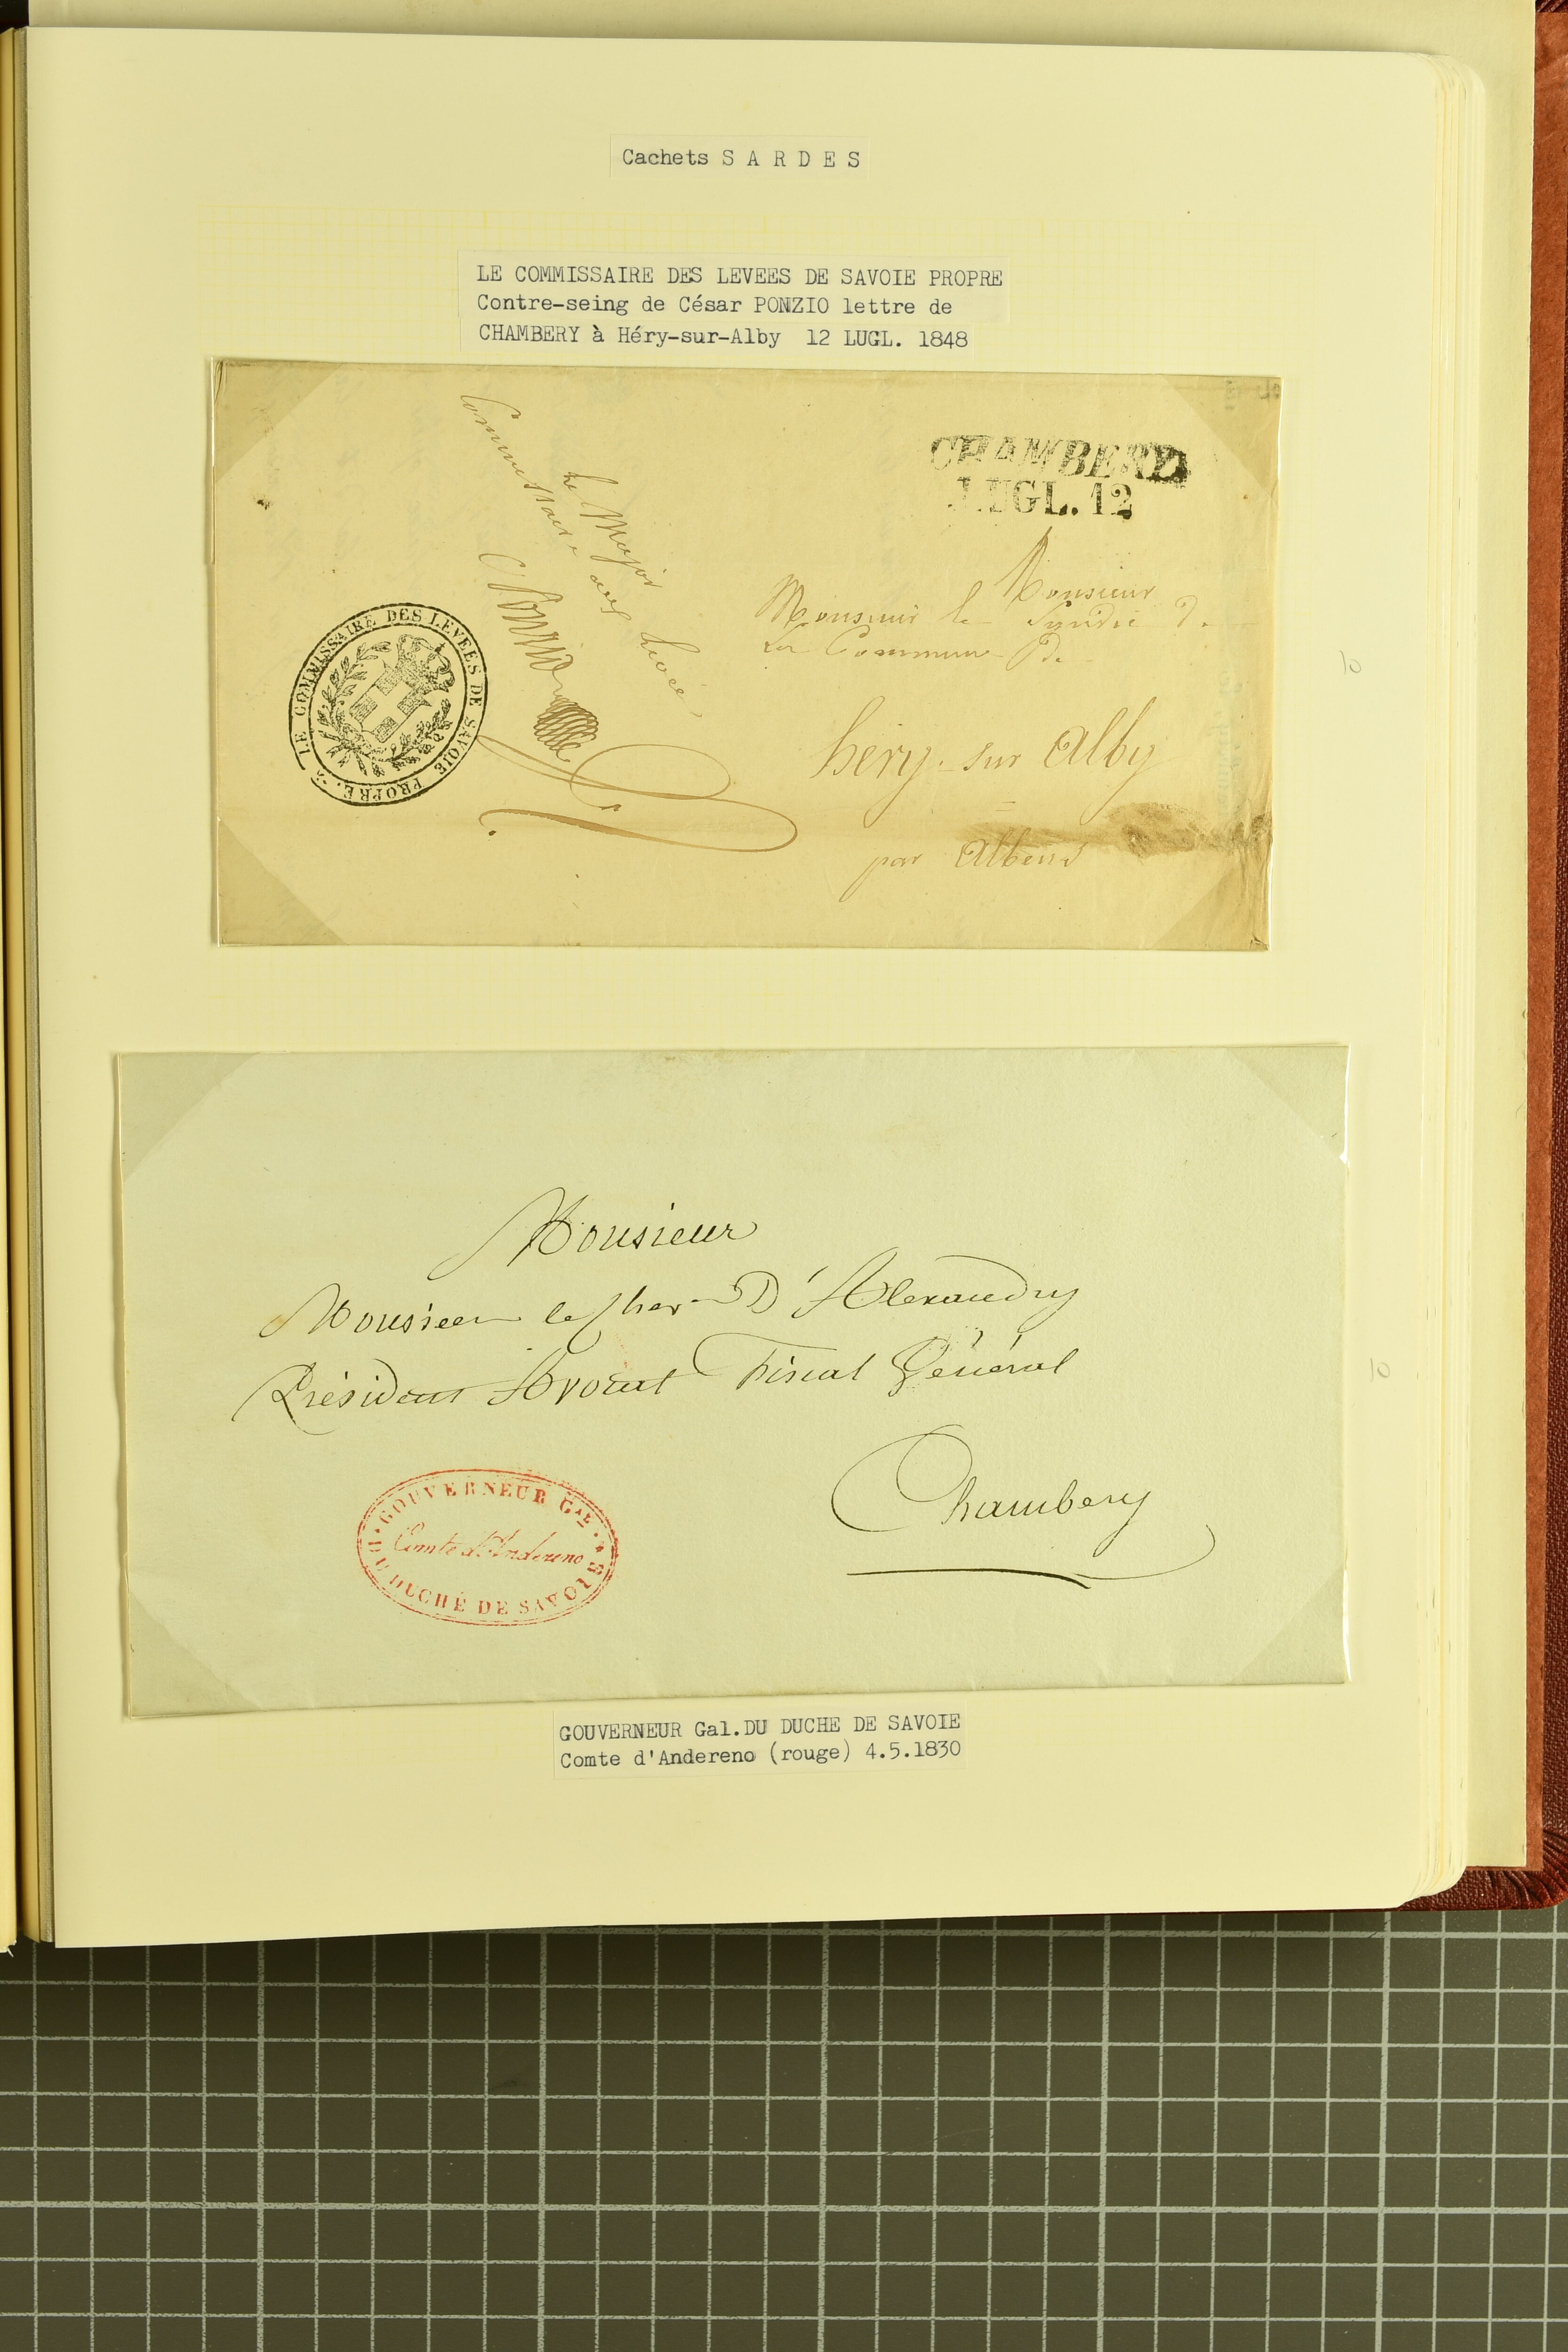 Cachets S A R D E S
LE COMMISSAIRE DES LEVEES DE SAVOIE PROPRE
Contre-seing de César PONZIO lettre de
CHAMBERY à Héry-sur-Alby 12 LUGL. 1848
CHAMBERY
LUGL. 12
Le Major
Commissaire des Levées
C Ponzio
LE COMMISSAIRE DES LEVEES DE SAVOIE PROPRE.
Monsieur
Monsieur le Syndic de
La Commune De
héry-sur Alby
par Albens
10
Monsieur
Monsieur le Cher D'Alexandry
Président Avocat Fiscal Général
Chambery
10
GOUVERNEUR GAL
Comte d'Andereno
DU DUCHÉ DE SAVOIE
GOUVERNEUR Gal.DU DUCHE DE SAVOIE
Comte d'Andereno (rouge) 4.5.1830